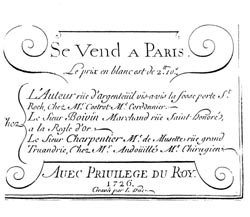 Se Vend A PARIS.
Le prix en blanc est de 2.tt 10.s
L'Auteur rüe d'argenteüil vis-avis la fosse porte S.t
Roch, Chez M.r Costrot M.e Cordonnier.
chez Le Sieur Boivin Marchand rüe Saint-honoré,
a la Regle d'Or
Le Sieur Charpentier M.e de Musette rüe grand
Truandrie, Chez M.r Andoüillé M.e Chirugien
AVEC PRIUILEGE DU ROY.
1726.
Gravée par L. Hüe.